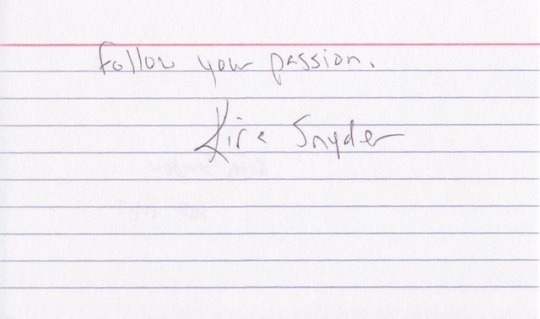 Follow your passion.
Kira Snyder